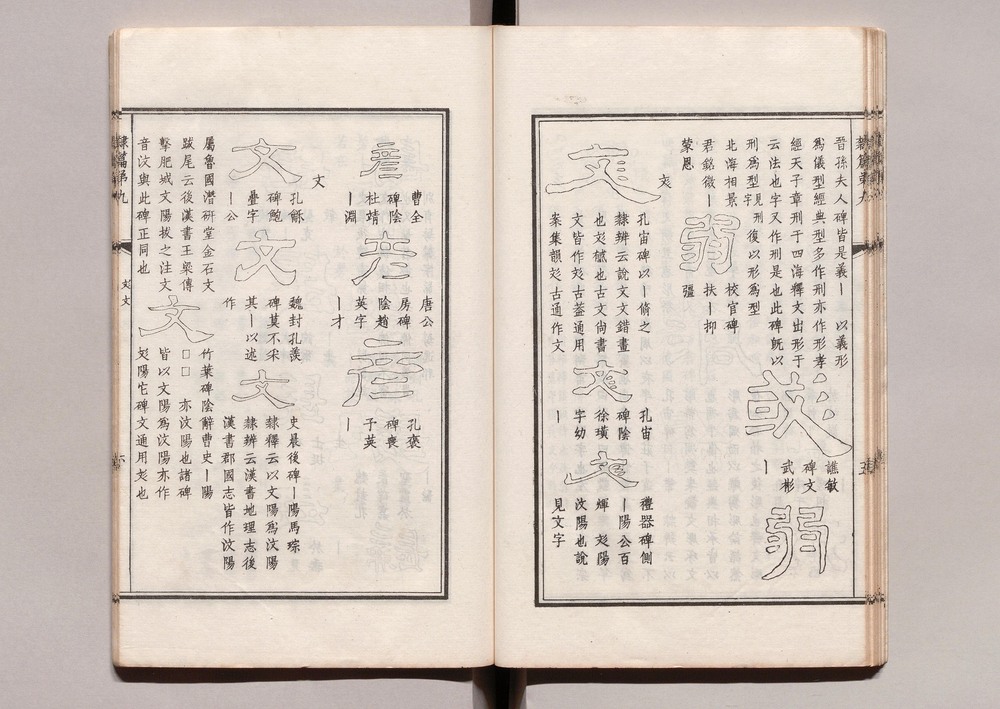 晉孫夫人碑皆是義丨 以義形
為儀型經典型多作刑亦作形孝
經天子章刑于四海釋文出形于
云法也字又作刑是也此碑既以
刑為型見刑字復以形為型
彧
譙敏
碑文
武彬
丨
弱
北海相景
君銘微丨
蒙恩
弱
校官碑
扶丨抑
彊
彣
彣
孔宙碑以丨脩之
隸辨云說文文錯畫
也彣㦽也古文尚書
文皆作彣葢通用
案集韻彣古通作文
彣
孔宙
碑陰
徐璜
字幼
丨
彣
禮器碑側
丨陽公百
煇 彣陽
汶陽也說
見文字
隸篇第九
五
彥
曹全
碑陰
杜靖
丨淵
彥
唐公
房碑
陰趙
英字
丨才
彥
孔褒
碑喪
予英
丨
文
文
孔龢
碑鮑
疊字
丨公
文
魏封孔羨
碑莫不采
其丨以述
作
文
史晨後碑丨陽馬琮
隸釋云以文陽為汶陽
隸辨云漢書地理志後
漢書郡國志皆作汶陽
屬魯國潛研堂金石文
跋尾云後漢書王梁傳
擊肥城文陽拔之注文
音汶與此碑正同也
文
竹葉碑陰辭曹史丨陽
□□ 亦汶陽也諸碑
皆以文陽為汶陽亦作
彣陽它碑文通用彣也
隸篇第九
彣文
六